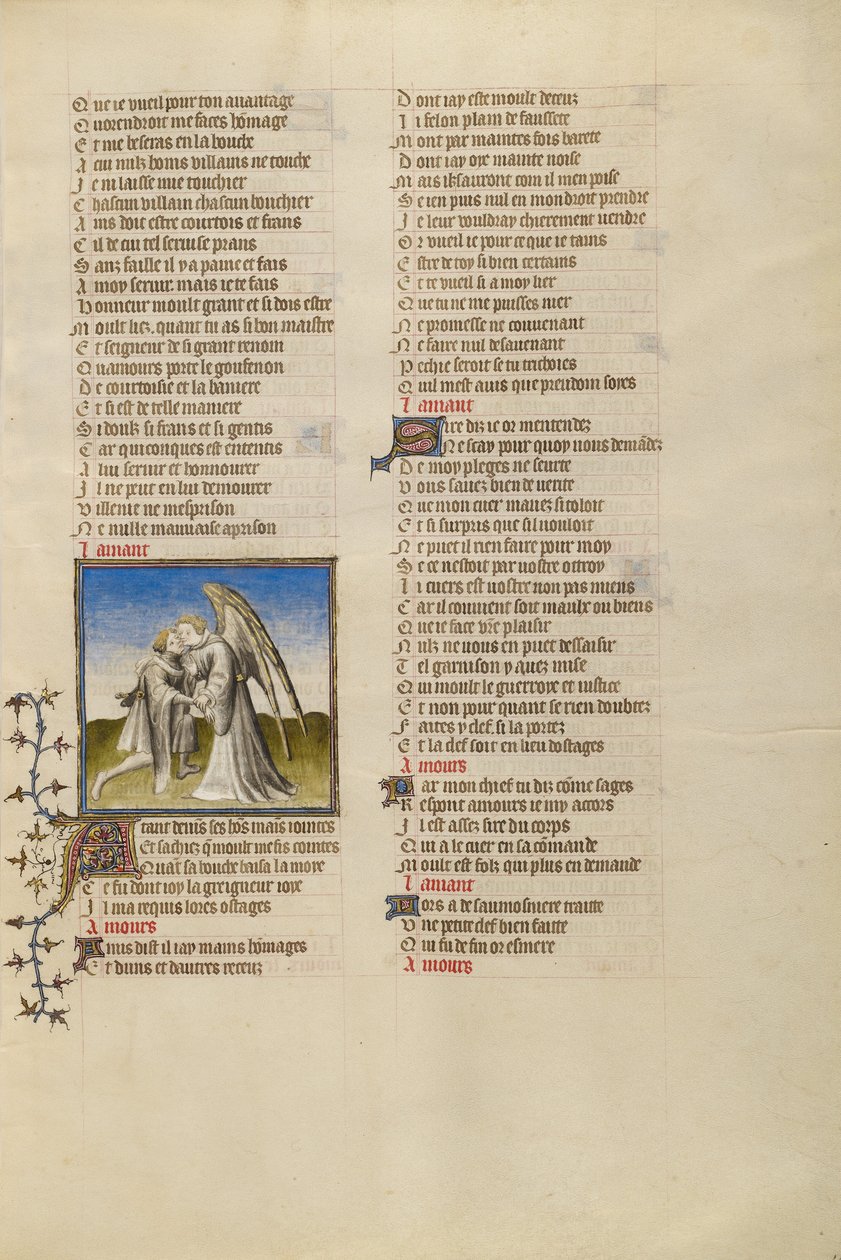 Que ie vueil pour ton auantage
Quorendroit me faces hōmage
Et me beseras en la bouche
A cui nulz homs villains ne touche
Je ni laisse mie touchier
Chascun villain chascun bouchier
Ains doit estre courtois et frans
Cil de cui tel seruise prans
Sanz faille il y a paine et fais
A moy seruir. mais ie te fais
Honneur moult grant et si dois estre
Moult liez. quant tu as si bon maistre
Et seigneur de si grant renom
Quamours porte le goufenon
De courtoisie et la baniere
Et si est de telle maniere
Si doulz si frans et si gentis
Car quiconques est ententis
A lui seruir et honnourer
Il ne peut en lui demourer
Villenie ne mesprison
Ne nulle mauuaise aprison
Lamant
Atant deuīs ses hōs mais iointes
Et sachiez q̄ moult me fis cointes
Quāt sa bouche baisa la moye
Ce fu dont ioy la greigneur ioye
Il ma requis lores ostages
Amours
Amis dist il iay mains hōmages
Et duns et dautres receuz
Dont iay este moult deceuz
Li felon plain de faussete
Mont par maintes fois barete
Dont iay oye mainte noise
Mais ilz sauront com il men poise
Se ien puis nul en mon droit prendre
Je leur vouldray chierement vendre
Or vueil ie pour ce que ie taims
Estre de toy si bien certains
Et te vueil si a moy lier
Que tu ne me puisses nier
Ne promesse ne conuenant
Ne faire nul desauenant
Pechie seroit se tu trichoies
Quil mest auis que preudom soyes
Lamant
Sire diz ie or mentendez
Ne scay pour quoy vous demādez
De moy pleges ne seurte
Vous sauez bien de verite
Que mon cuer mauez si toloit
Et si surpris que sil vouloit
Ne puet il rien faire pour moy
Se ce nestoit par vostre ottroy
Li cuers est vostre non pas miens
Car il conuient soit maulx ou biens
Que ie face vr̄e plaisir
Nulz ne vous en puet dessaisir
Tel garnison y auez mise
Qui moult le guerroye et iustice
Et non pour quant se rien doubtez
Faites y clef. si la portez
Et la clef soit en lieu dostages
Amours
Par mon chief tu diz cōme sages
Respont amours ie my acors
Il est assez sire du corps
Qui a le cuer en sa cōmande
Moult est folz qui plus en demande
Lamant
Lors a de saumosniere traite
Vne petite clef bien faite
Qui fu de fin or esmere
Amours